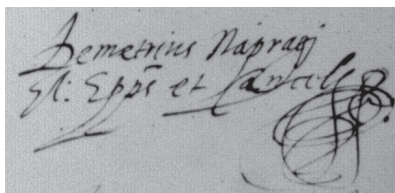 Demetrius Napragj
El: Epp̃s et Cancell